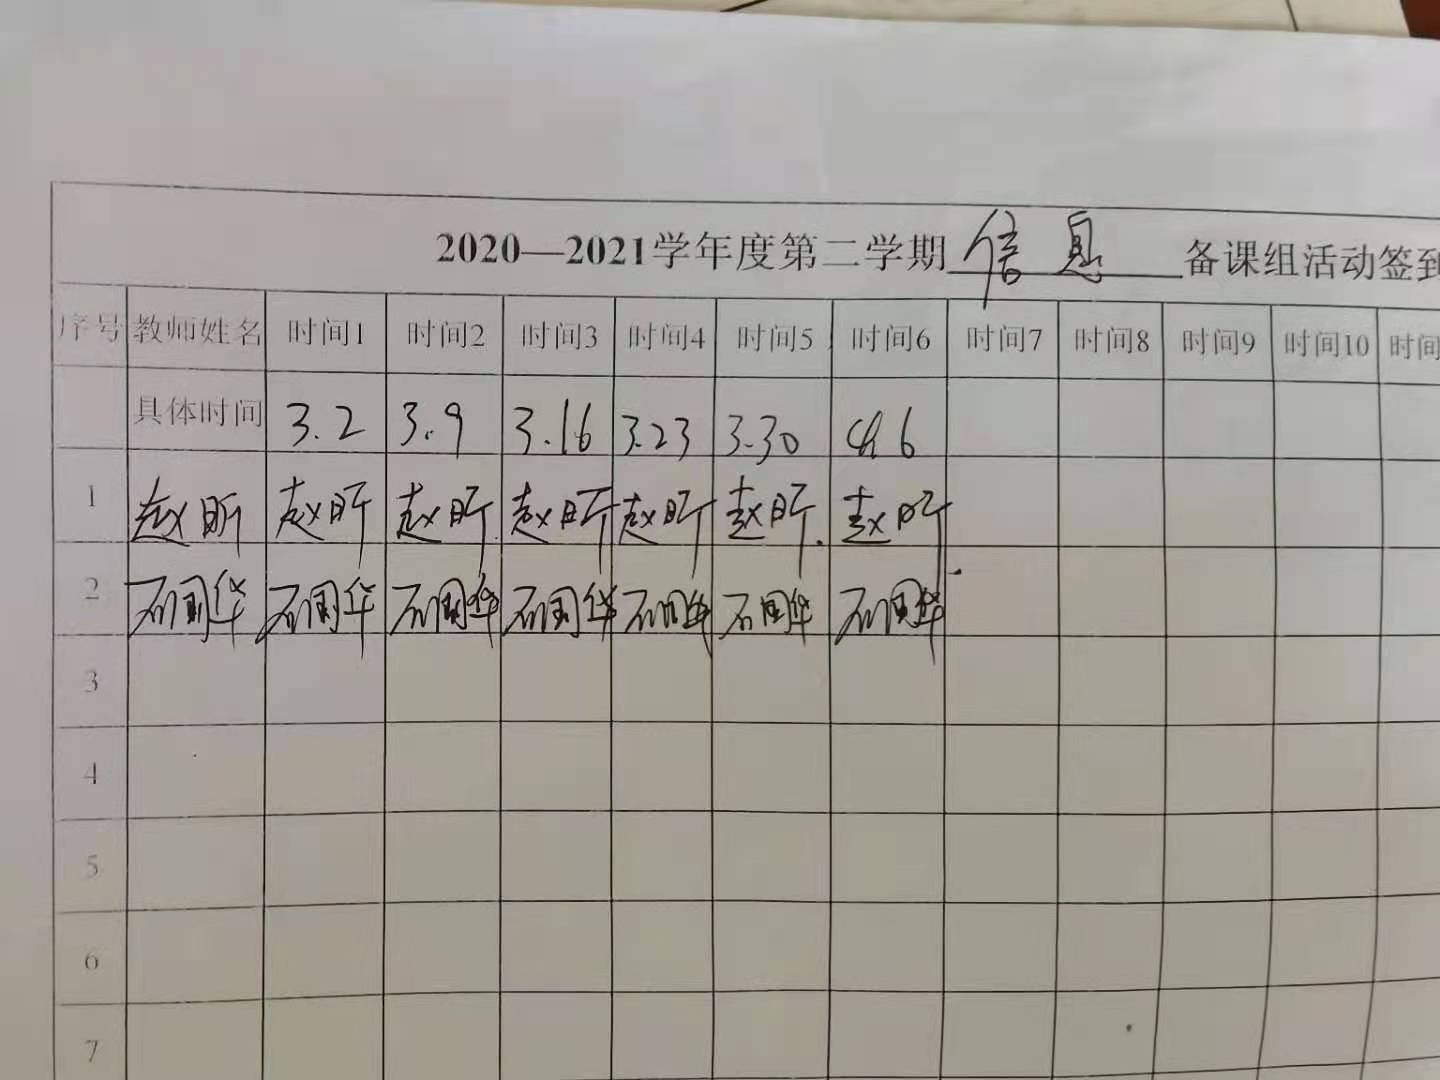 2020—2021学年度第二学期 信息 备课组活动签到
序号 教师姓名 时间1 时间2 时间3 时间4 时间5 时间6 时间7 时间8 时间9 时间10 时间
具体时间 3.2 3.9 3.16 3.23 3.30 4.6
1 赵昕 赵昕 赵昕 赵昕 赵昕 赵昕 赵昕
2 石国华 石国华 石国华 石国华 石国华 石国华 石国华
3
4
5
6
7